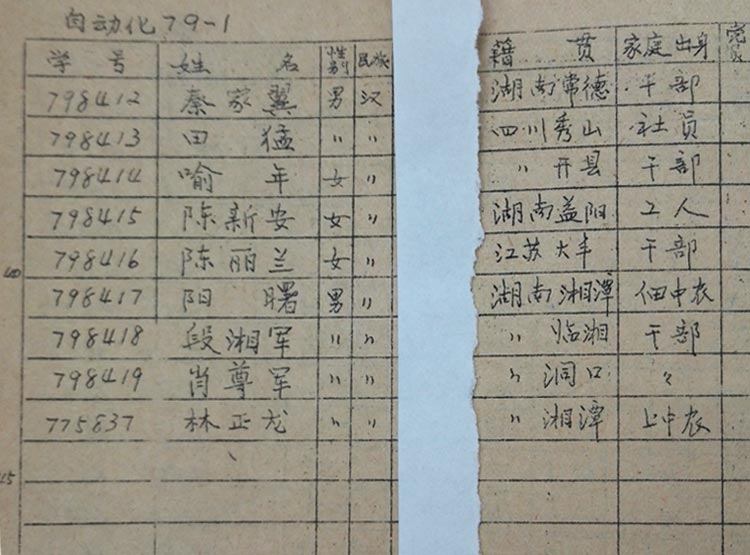 自动化79-1
学号 姓名 性别 民族 籍贯 家庭出身
798412 秦家翼 男 汉 湖南常德 干部
798413 田猛 〃 〃 四川秀山 社员
798414 喻年 女 〃 〃 开县 干部
798415 陈新安 女 〃 湖南益阳 工人
40 798416 陈丽兰 女 〃 江苏大丰 干部
798417 阳曙 男 〃 湖南湘潭 佃中农
798418 段湘军 〃 〃 〃 临湘 干部
798419 肖尊军 〃 〃 〃 洞口 〃
775837 林正龙 〃 〃 〃 湘潭 上中农
45